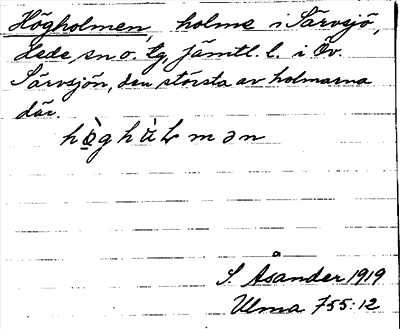 Högholmen, holme i Särvsjö,
Hede sn o. tg, Jämtl. l. i Öv.
Särvsjön, den största av holmarna
där.
S. Åsander 1919
Ulma 755:12